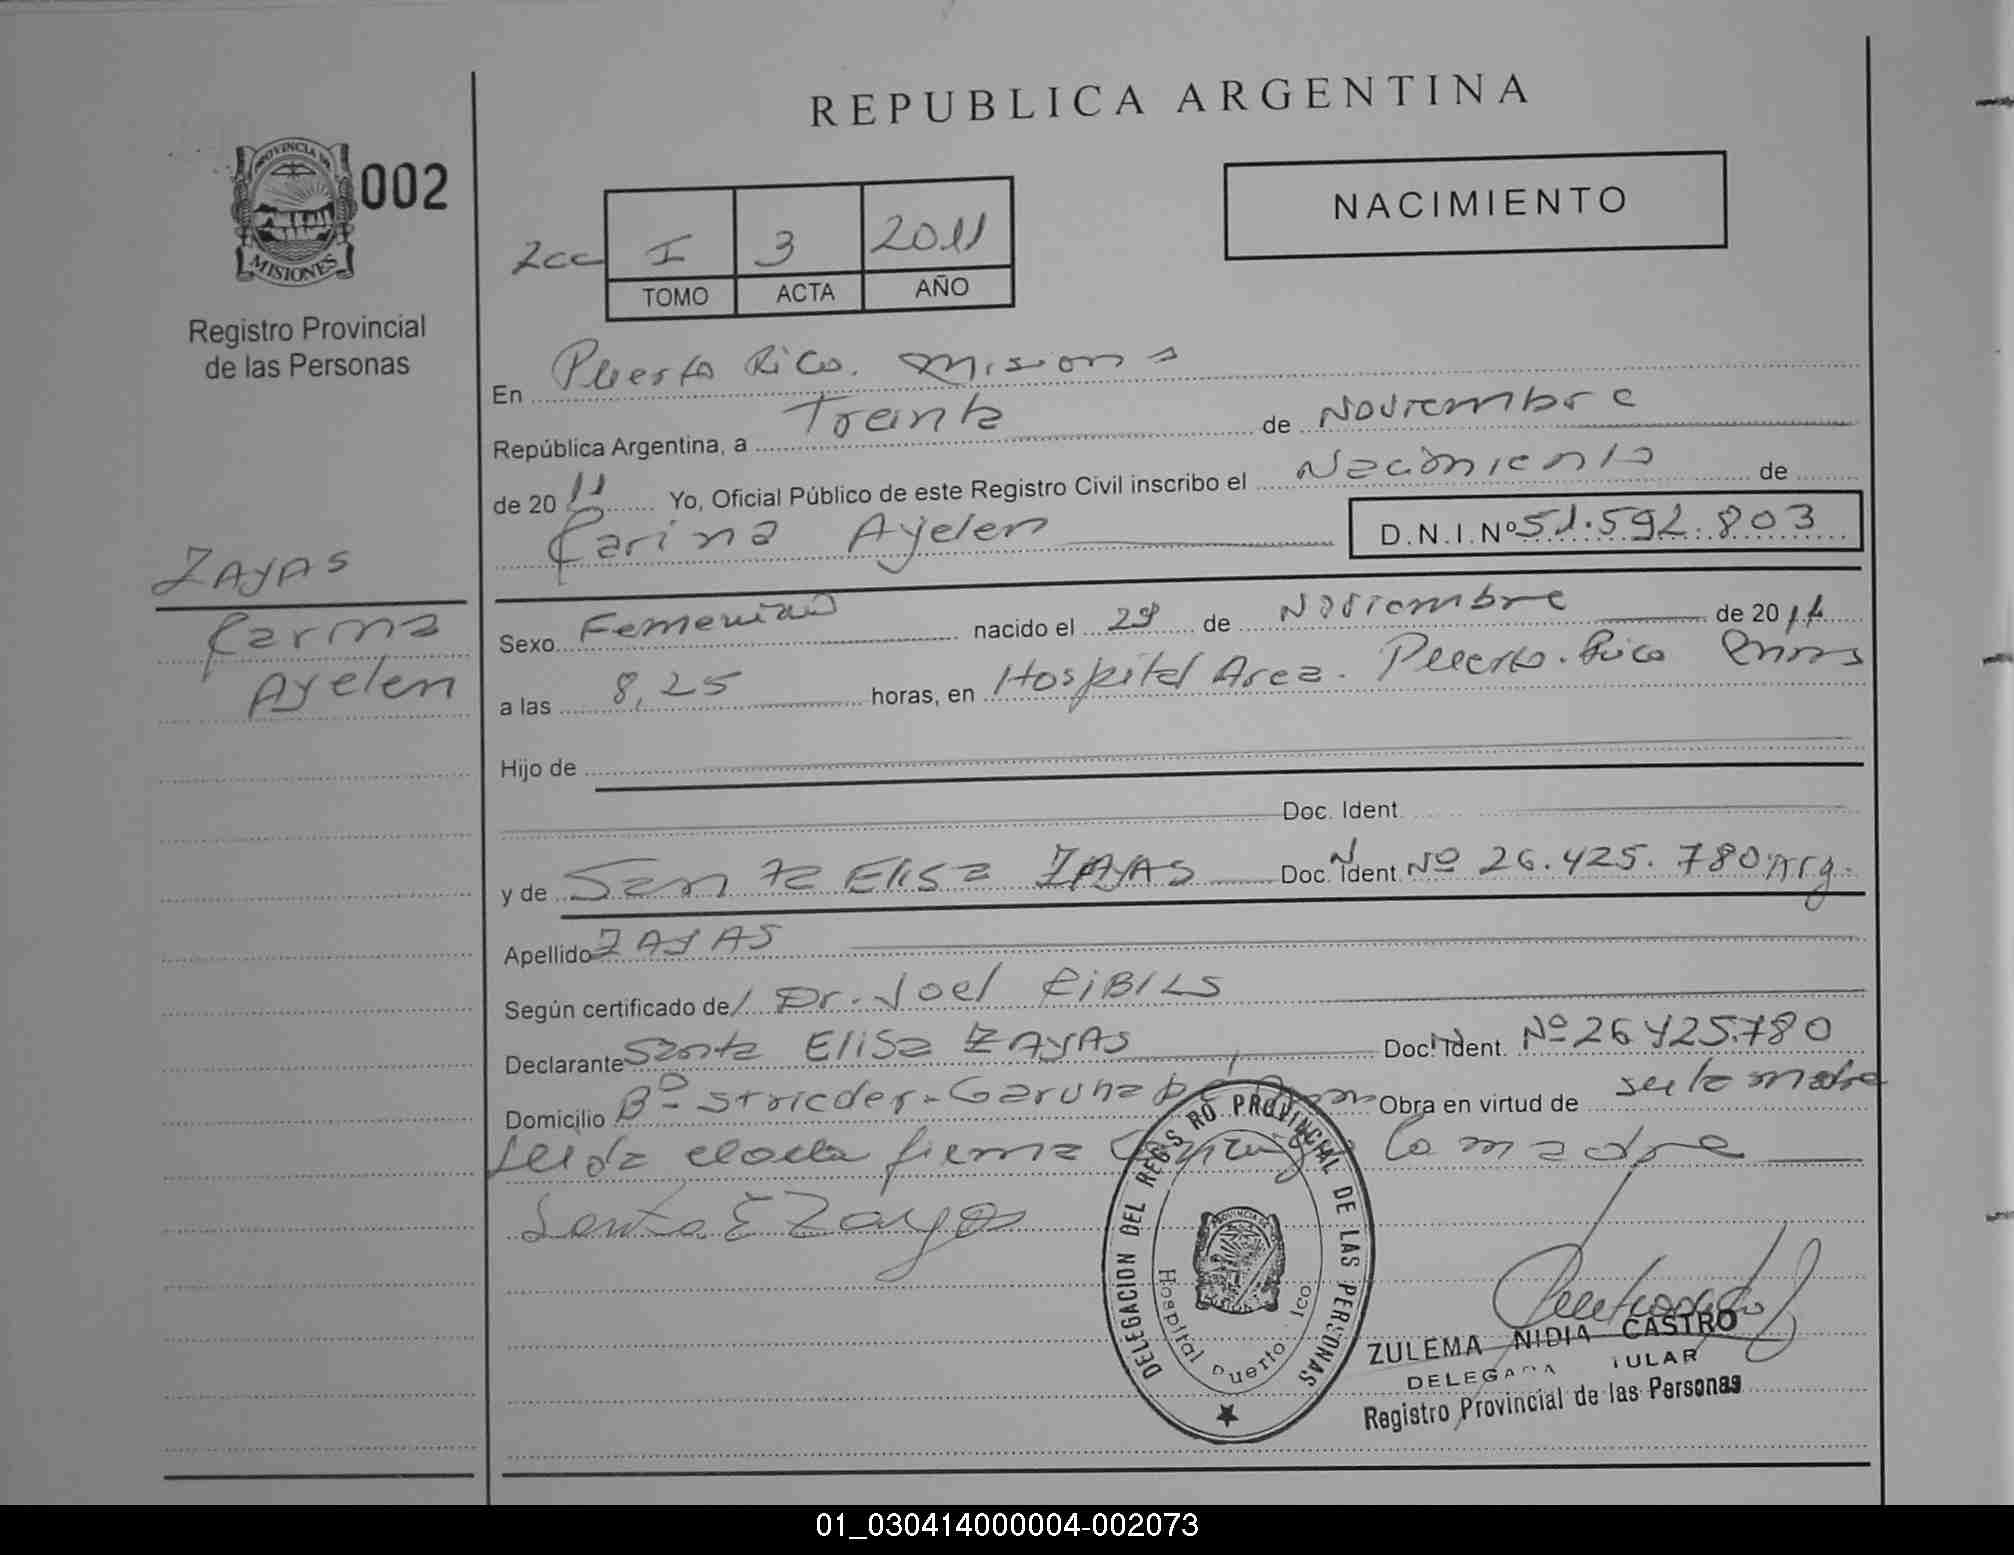 REPUBLICA ARGENTINA
PROVINCIA DE
MISIONES
002
Registro Provincial
de las Personas
NACIMIENTO
2cc I 3 2011
TOMO ACTA AÑO
En Puerto Rico. Misiones
República Argentina, a Treinta de Noviembre
de 2011 Yo, Oficial Público de este Registro Civil inscribo el Nacimiento de
Carina Ayelen D.N.I.Nº 51.592.803
ZAYAS
Carina
Ayelen
Sexo Femenino nacido el 29 de Noviembre de 2011
a las 8,25 horas, en Hospital Area. Puerto. Rico
Hijo de
Doc. Ident.
y de Santa Elisa ZAYAS Doc. Ident. Nº 26.425.780 Arg.
Apellido ZAYAS
Según certificado de Dr. Joel RIBILS
Declarante Santa Elisa ZAYAS Doc. Ident. Nº 26425.780
Domicilio Bº Stricder - Garuhapé Obra en virtud de ser la madre
Leida el acta firma la madre
Santa E Zayas
DELEGACION DEL REGISTRO PROVINCIAL DE LAS PERSONAS
Hospital Puerto ico
ZULEMA NIDIA CASTRO
DELEGADA TULAR
Registro Provincial de las Personas
01_030414000004-002073